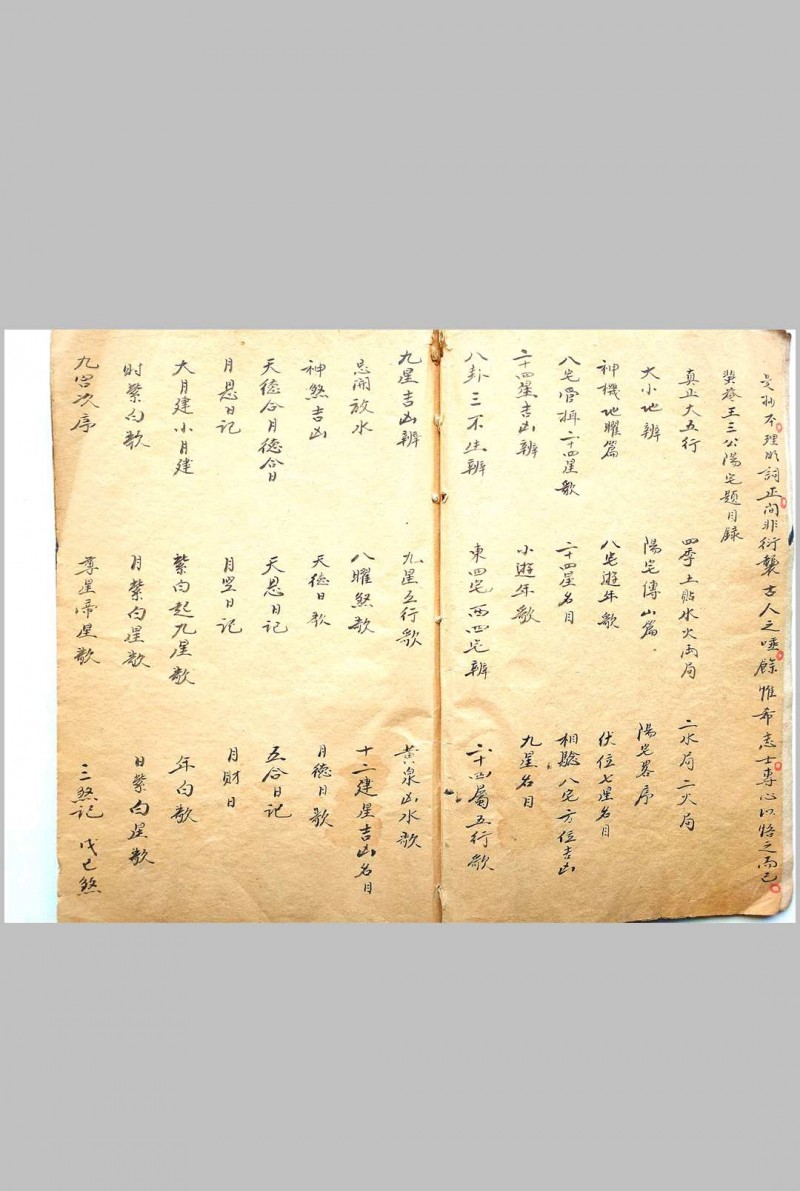 是抄本理明詞正间非衍襲古人之唾餘惟希志士專心以悟之而已
王三公陽宅題目録
真正大五行 四季土貼水火两局 二水局二火局
大小地辨 陽宅傳山篇 陽宅畧序
神機地曜篇 八宅遊年歌 伏位七星名目
八宅管捐二十四星歌 二十四星名目 相驗八宅方位吉凶
二十四星吉凶辨 小遊年歌 九星名目
八卦三不生辨 東四宅西四宅辨 二十四属五行歌
九星吉凶辨 九星五行歌 黄泉凶水歌
忌開放水 八曜煞歌 十二建星吉凶名目
神煞吉凶 天德日歌 月德日歌
天德合月德合日 天恩日记 五合日记
月恩日记 月空日记 月財日
大月建小月建 紫白起九星歌 年白歌
时紫白歌 月紫白星歌 日紫白星歌
九宫次序 尊星帝星歌 三煞記 戊己煞